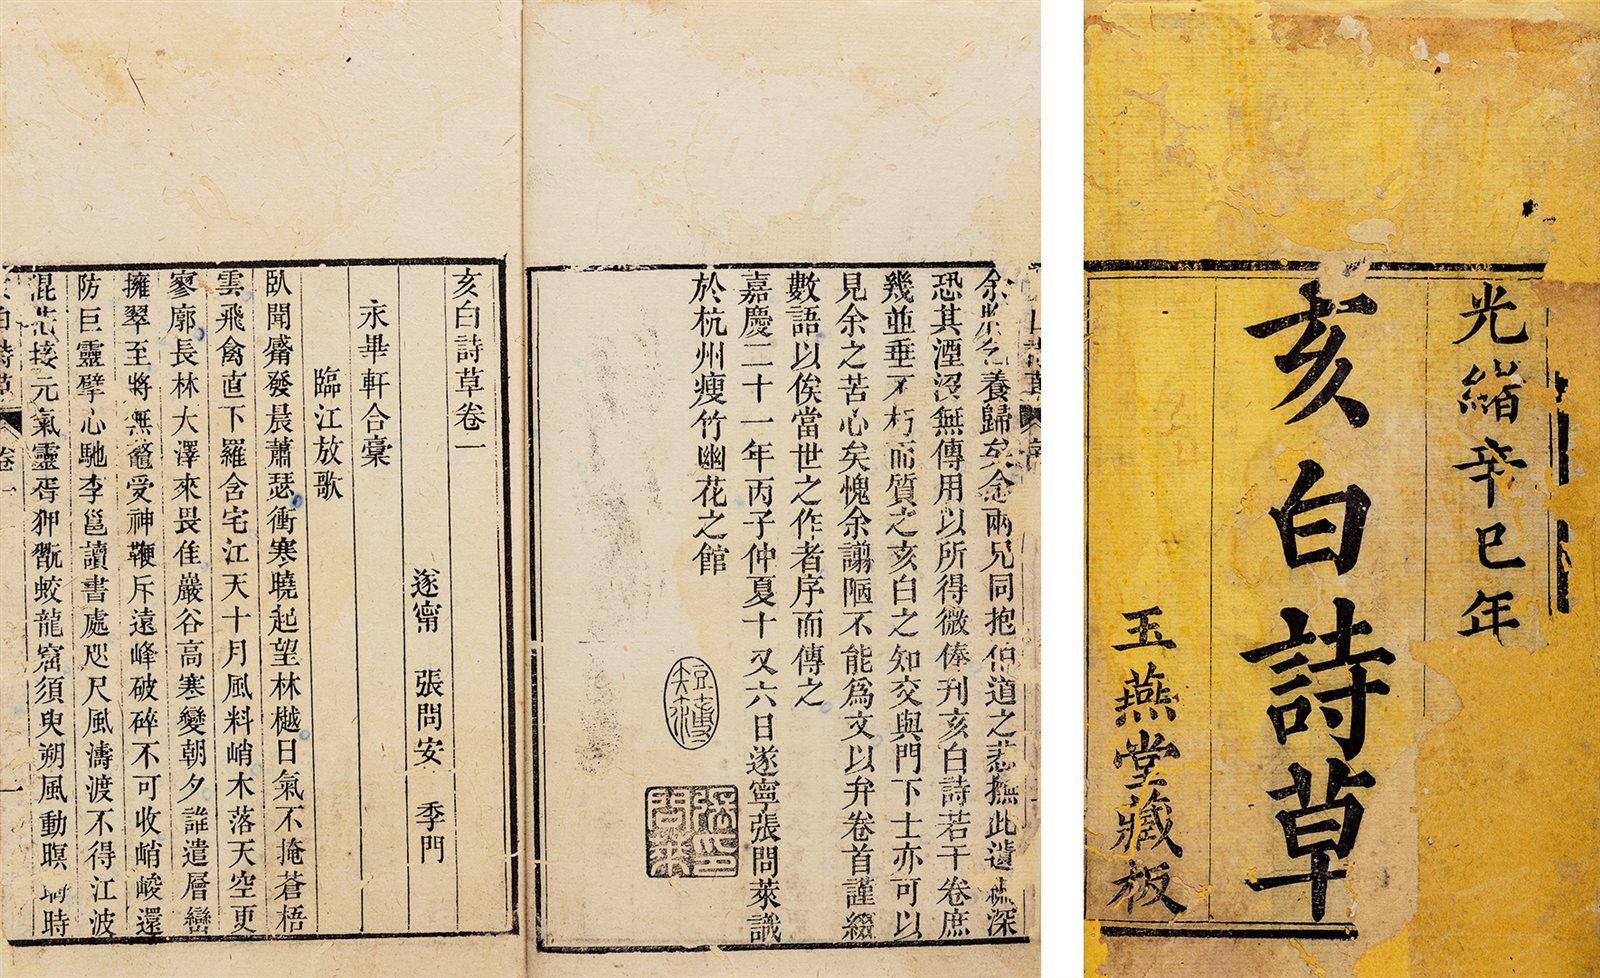 光緒辛巳年
亥白詩草
玉燕堂藏板
養歸矣念兩兄同抱伯道之悲撫此遺橐深
恐其湮沒無傳用以所得微俸刊亥白詩若干卷庶
幾並垂不朽而質之亥白之知交與門下士亦可以
見余之苦心矣愧余謭陋不能爲文以弁卷首謹綴
數語以俟當世之作者序而傳之
嘉慶二十一年丙子仲夏十又六日遂寧張問萊識
於杭州瘦竹幽花之館
張問萊印
亥白詩草卷一
遂甯 張問安 季門
永畢軒合稾
臨江放歌
臥聞觱發晨蕭瑟衝寒曉起望林樾日氣不掩蒼梧
雲飛禽直下羅含宅江天十月風料峭木落天空更
寥廓長林大澤來畏隹巖谷高寒變朝夕誰遣層巒
擁翠至將無鼇受神鞭斥遠峰破碎不可收峭崚還
防巨靈擘心馳李邕讀書處咫尺風濤渡不得江波
混茫接元氣靈胥狎翫蛟龍窟須臾朔風動暝 時
亥白詩草 卷一 一